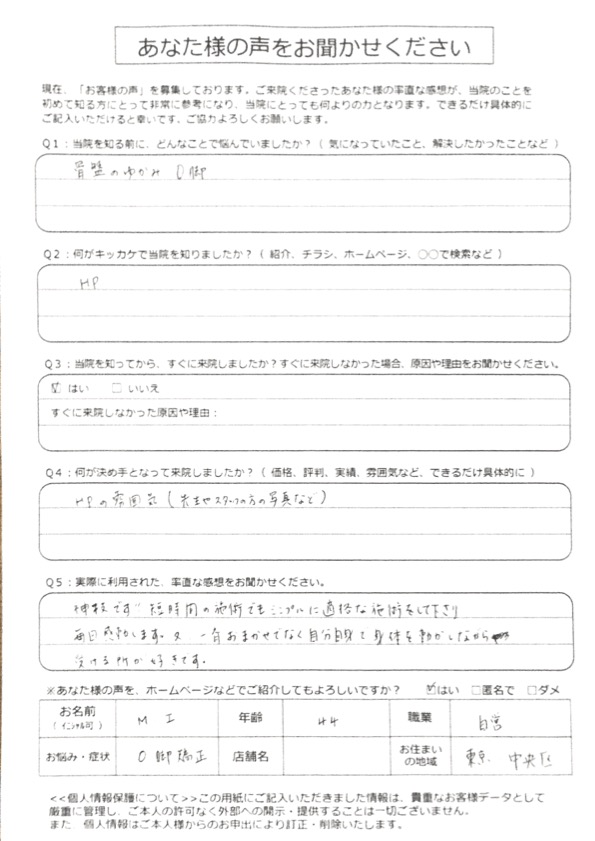 あなた様の声をお聞かせください
現在、「お客様の声」を募集しております。ご来院くださったあなた様の率直な感想が、当院のことを
初めて知る方にとって非常に参考になり、当院にとっても何よりの力となります。できるだけ具体的に
ご記入いただけると幸いです。ご協力よろしくお願いします。
Q1：当院を知る前に、どんなことで悩んでいましたか？（ 気になっていたこと、解決したかったことなど ）
骨盤のゆがみ O脚
Q2：何がキッカケで当院を知りましたか？（ 紹介、チラシ、ホームページ、○○で検索など ）
HP
Q3：当院を知ってから、すぐに来院しましたか？すぐに来院しなかった場合、原因や理由をお聞かせください。
☑ はい □ いいえ
すぐに来院しなかった原因や理由：
Q4：何が決め手となって来院しましたか？（ 価格、評判、実績、雰囲気など、できるだけ具体的に ）
HPの雰囲気（先生やスタッフの方の写真など）
Q5：実際に利用された、率直な感想をお聞かせください。
神技です 短時間の施術でもシンプルに適格な施術をして下さり
毎回感動します。又、一方おまかせでなく自分自身で身体を動かしながら
受ける所が好きです。
※あなた様の声を、ホームページなどでご紹介してもよろしいですか？ ☑はい □匿名で □ダメ
お名前（イニシャル可） M I 年齢 44 職業 自営
お悩み・症状 O脚矯正 店舗名 お住まいの地域 東京 中央区
<<個人情報保護について>>この用紙にご記入いただきました情報は、貴重なお客様データとして
厳重に管理し、ご本人の許可なく外部への開示・提供することは一切ございません。
また、個人情報はご本人様からのお申出により訂正・削除いたします。